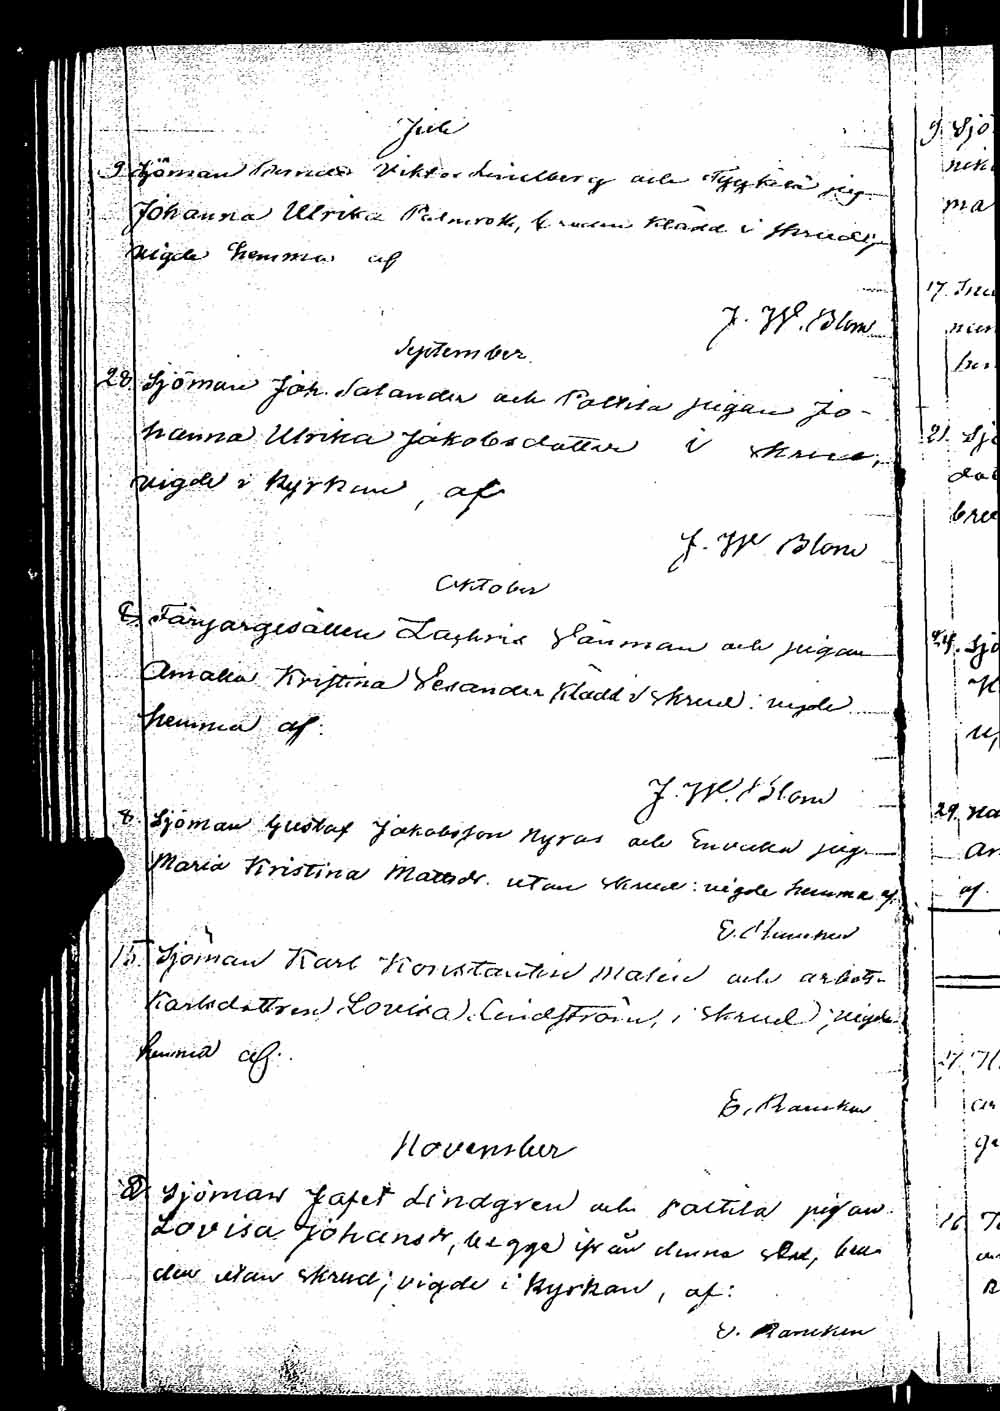 Juli
9. Sjöman Viktor Lindberg och pig.
Johanna Ulrika Palmroth, bruden klädd i skrud;
vigde hemma af
J. W. Blom
September
28. Sjöman Joh. Salander och Paltila pigan Jo-
hanna Ulrika Jakobsdotter i skrud,
vigde i kyrkan, af
J. W. Blom
Oktober
Färgargesällen Zachris Wänman och pigan
Amalia Kristina Lexander klädd i skrud: vigde
hemma af:
J. W. Blom
8. Sjöman Gustaf Jakobsson Nyroos och pig.
Maria Kristina Mattsdr. utan skrud: vigde hemma af
E. Rancken
15. Sjöman Karl Konstantin Malin och arbets-
karlsdottren Lovisa Lindström, i skrud; vigde
hemma af:
E. Rancken
November
Sjöman Jafet Lindgren och Paltila pigan
Lovisa Johansdr, begge ifrån denna stad, bru-
den utan skrud; vigde i kyrkan, af:
E. Rancken
9. Sjö
ma
17.
21. Sjö
24. Sjö
29.
af.
16.